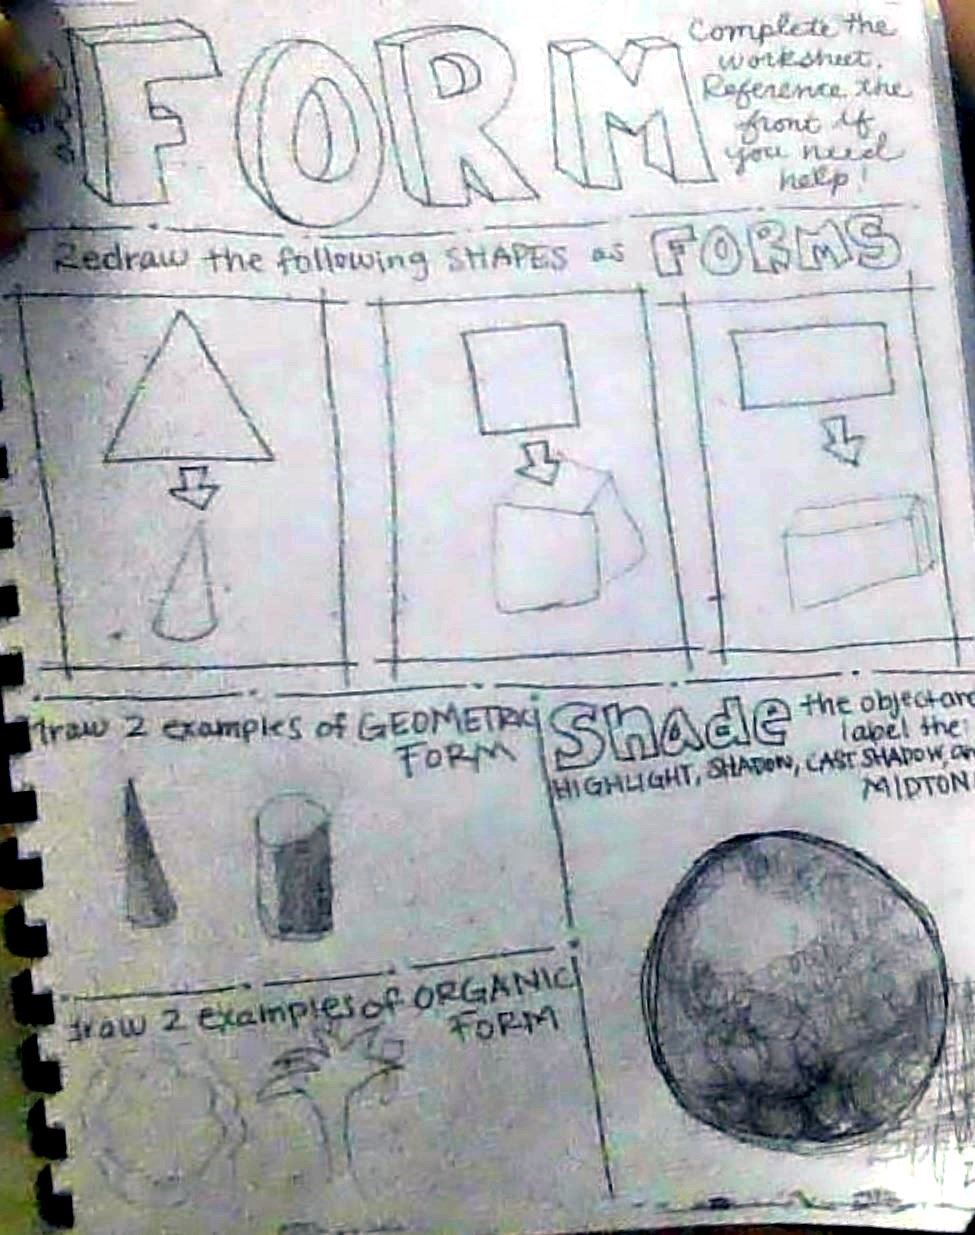 FORM
Complete the
worksheet.
Reference the
front if
you need
help!
Redraw the following SHAPES as FORMS
draw 2 examples of GEOMETRIC
FORM
Shade the object
label the
HIGHLIGHT, SHADOW, CAST SHADOW,
MIDTON
draw 2 examples of ORGANIC
FORM